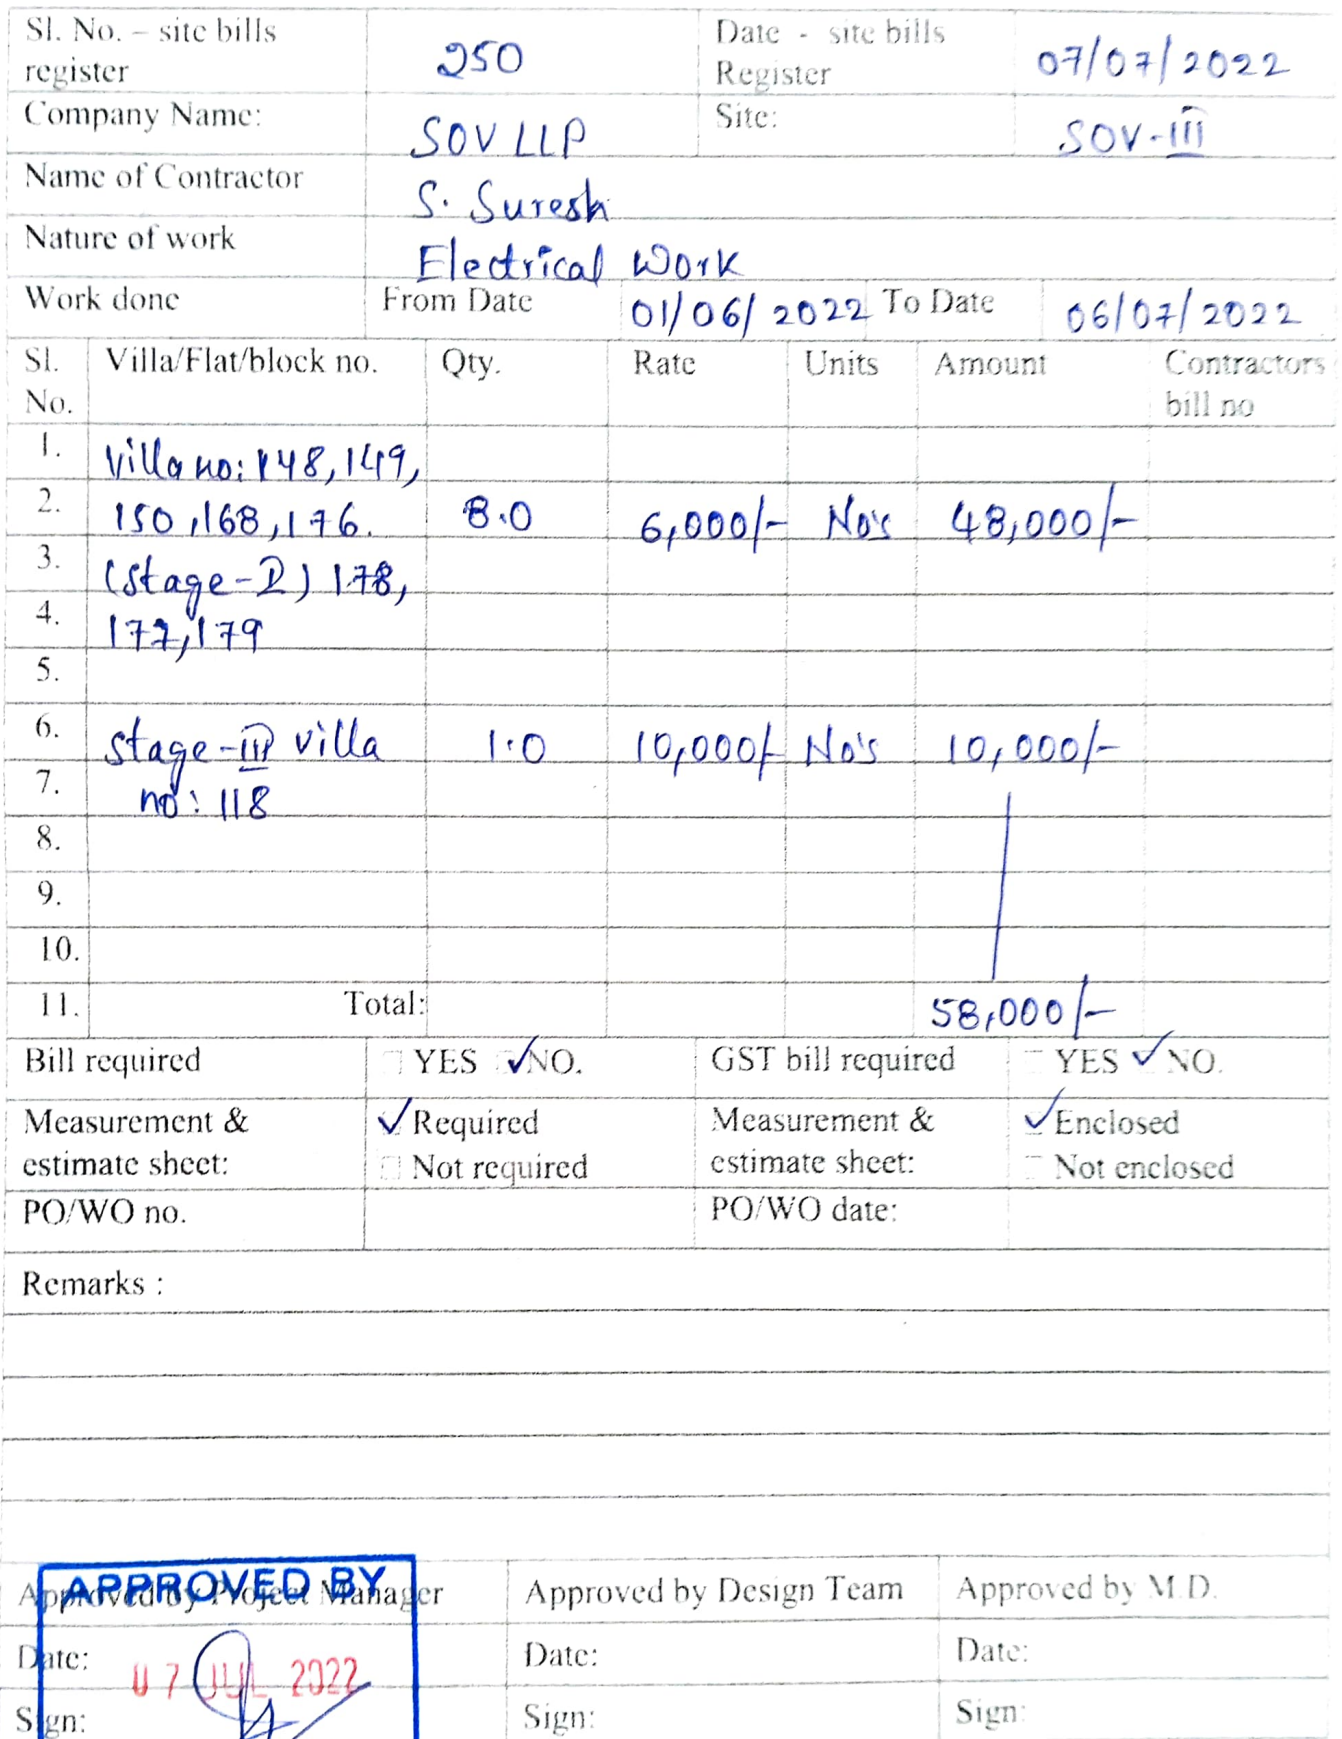 Sl. No. – site bills register 250 Date - site bills Register 07/07/2022
Company Name: SOV LLP Site: SOV-III
Name of Contractor S. Suresh
Nature of work Electrical Work
Work done From Date 01/06/2022 To Date 06/07/2022
Sl. No. Villa/Flat/block no. Qty. Rate Units Amount Contractors bill no
1. Villa no: 148, 149,
2. 150, 168, 176. 8.0 6,000/- No's 48,000/-
3. (Stage-2) 178,
4. 177, 179
5.
6. Stage-III villa 1.0 10,000/- No's 10,000/-
7. no: 118
8.
9.
10.
11. Total: 58,000/-
Bill required YES ✓NO. GST bill required YES ✓NO.
Measurement & estimate sheet: ✓Required Not required Measurement & estimate sheet: ✓Enclosed Not enclosed
PO/WO no. PO/WO date:
Remarks :
APPROVED BY
Approved by Project Manager Approved by Design Team Approved by M.D.
Date: 07 JUL 2022 Date: Date:
Sign: Sign: Sign: